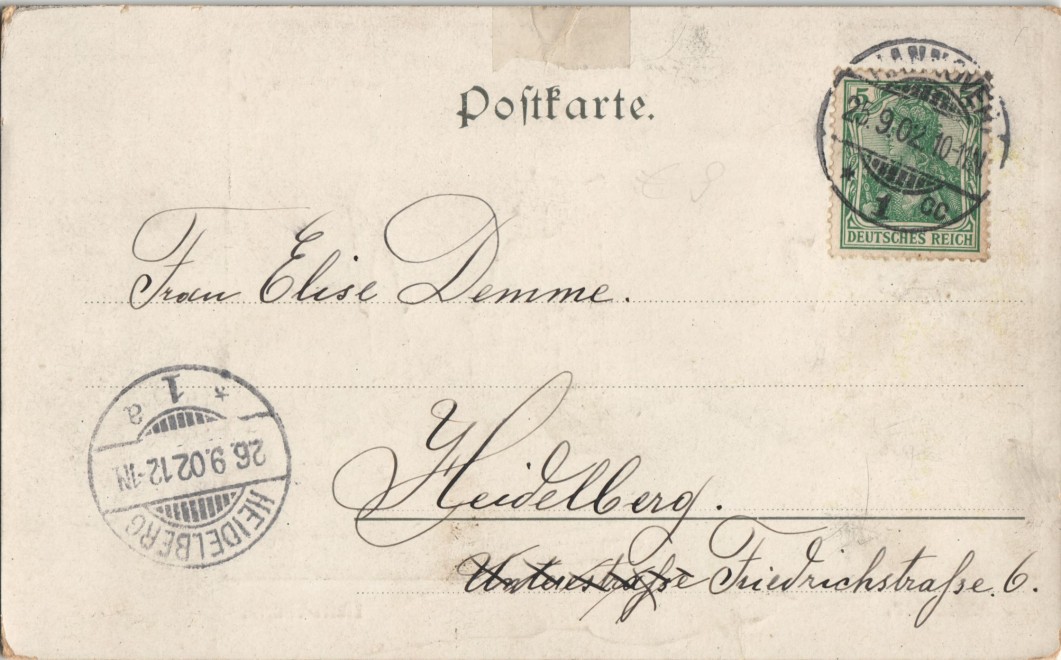 Poſtkarte.
HANNOVER
25.9.02. 10-11N
* 1 cc.
5
DEUTSCHES REICH
Frau Elise Demme.
* 1 a
26.9.02 12-1N
HEIDELBERG
Heidelberg.
Unterestraſse Friedrichstraſse 6.